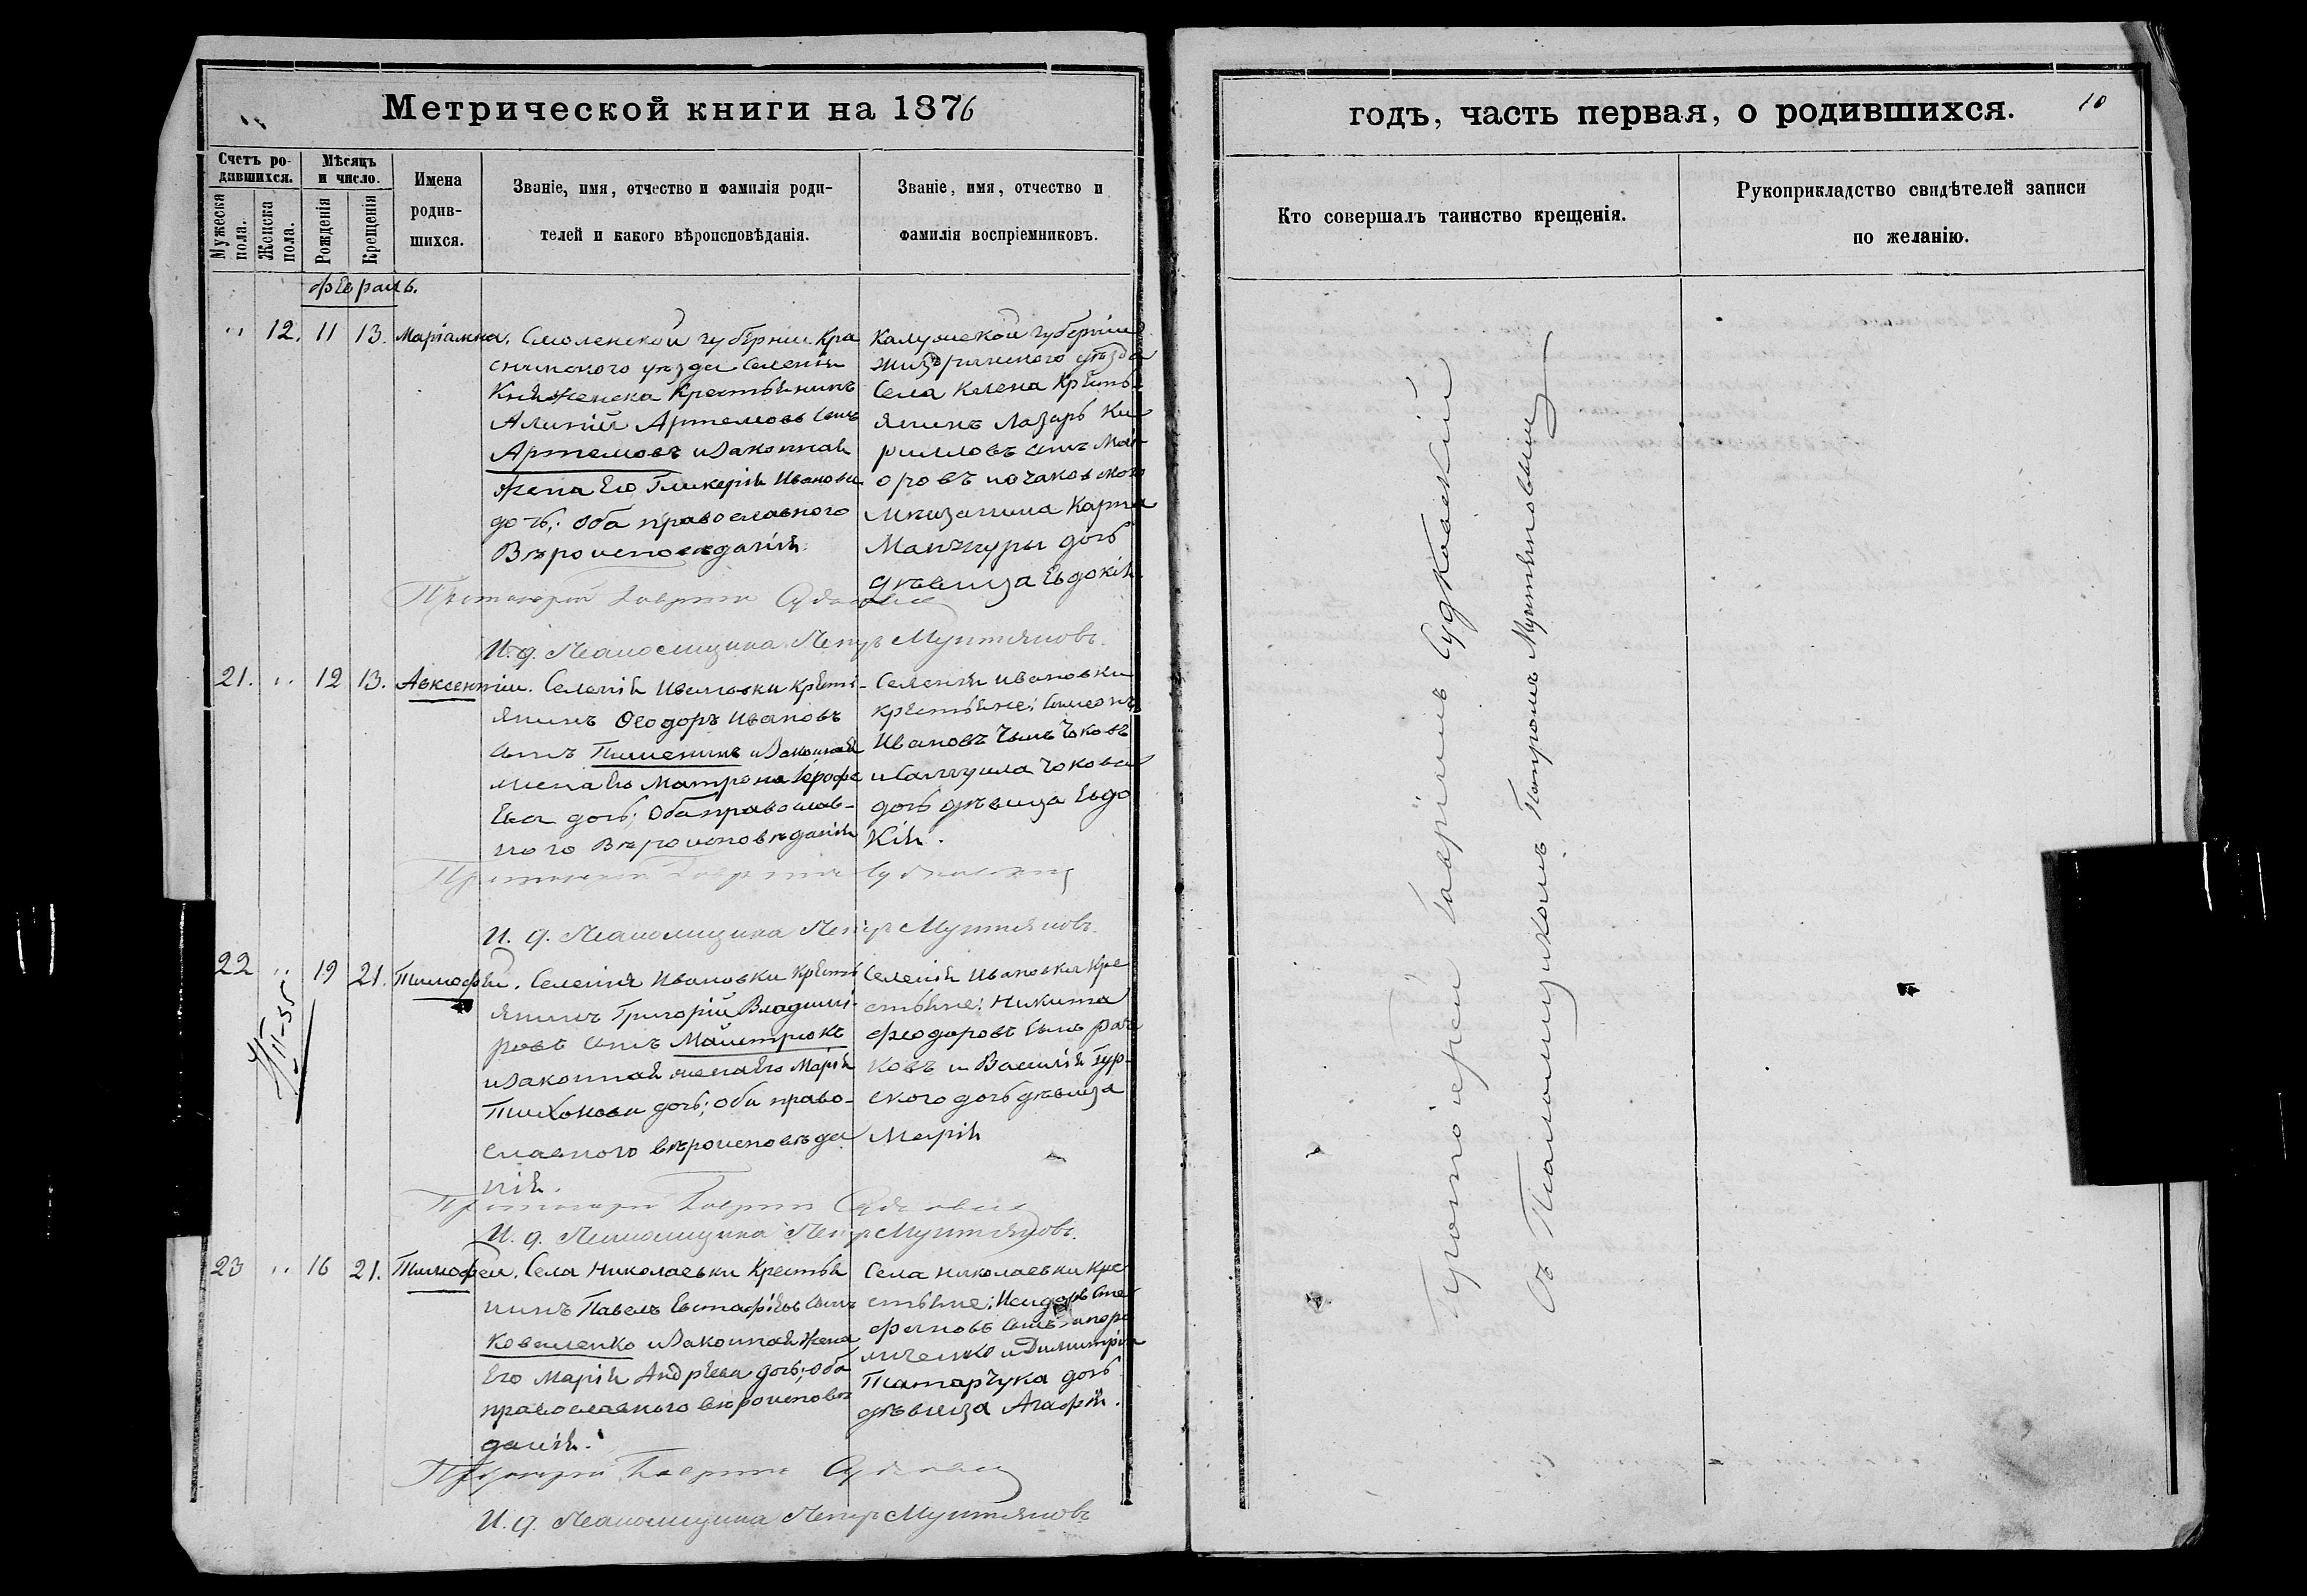 Метрической книги на 1876
Счетъ ро-
дившихся.
Мѣсяцъ
и число.
Мужеска
пола.
Женска
пола.
Рожденія
Крещенія
Имена
родив-
шихся.
Званіе, имя, отчество и фамилія роди-
телей и какого вѣроисповѣданія.
Званіе, имя, отчество и
фамилія воспріемниковъ.
февраль.
" 12. 11 13. Маріамна. Смоленской губерніи Кра
снинского уѣзда селенія
Княженска Крестьянинъ
Алипій Артемовъ сынъ
Артемовъ и законная
жена Его Гликерія Иванова
дочь; оба православного
Вѣроисповѣданія.
Калужской губерніи
Жиздринского уѣзда
Села Клена Кресть
янинъ Лазарь Ки
рилловъ сынъ Май
оровъ и очаковского
мѣщанина Карпа
Манжуры дочь
дѣвица Евдокія
Протоіерей Гавріилъ Судковскій
И. д. Псаломщика Петръ Мунтяновъ.
21. " 12 13. Авксентій. Селенія Ивановки крестЬ-
янинъ Ѳеодоръ Ивановъ
сынъ Пименинъ и Законная
жена его Матрона Іерофе
Ева дочь; Оба православ-
ного Вѣроисповѣданія
Селенія Ивановки
крестьяне: Симеонъ
Ивановъ сынъ Чоковъ
и Самуила Чокова
дочь дѣвица Евдо
Кія.
Протоіерей Гавріилъ Судковскій
И. д. Псаломщика Петръ Мунтяновъ.
22 " 19 21. Тимофей. Селенія Ивановки Кресть
янинъ Григорій Владимі-
ровъ сынъ Майстрюкъ
и законная жена Его Марія
Тихонова дочь; оба право-
славного вѣроисповѣда
нія.
Селенія Ивановки Кре
стьяне: Никита
Феодоровъ сынъ
и Василія Гур-
ского дочь дѣвица
Марія
II-55
Протоіерей Гавріилъ Судковскій
И. д. Псаломщика Петръ Мунтяновъ.
23 " 16 21. Тимофей. Села Николаевки Крестья
нинъ Павелъ Евстафіевъ сынъ
Коваленко и Законная жена
Его Марія Андреева дочь; оба
православного вѣроисповѣ
данія.
Села Николаевки Кре
стьяне: Исидоръ Сте
фановъ сынъ
и Димитрія
Татарчука дочь
дѣвица Агафія.
Протоіерей Гавріилъ Судковскій
И. д. Псаломщика Петръ Мунтяновъ
годъ, часть первая, о родившихся.
10
Кто совершалъ таинство крещенія.
Рукоприкладство свидѣтелей записи
по желанію.
Протоіерей Гавріилъ Судковскій
Съ Псаломщикомъ Петромъ Мунтяновымъ